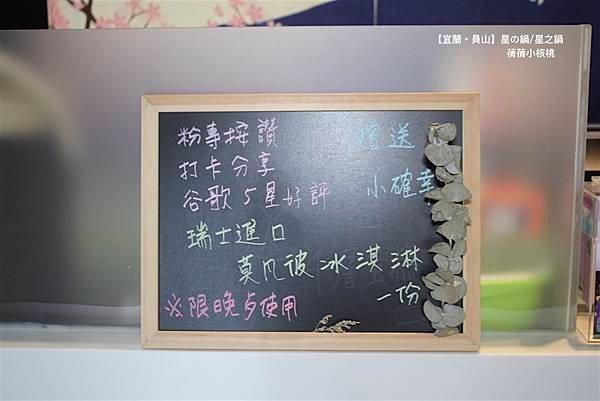 【宜蘭•員山】星の鍋/星之鍋
蒨蒨小核桃
粉專按讚 贈送
打卡分享
谷歌5星好評 小確幸
瑞士進口
莫凡彼冰淇淋
一份
※限晚点使用